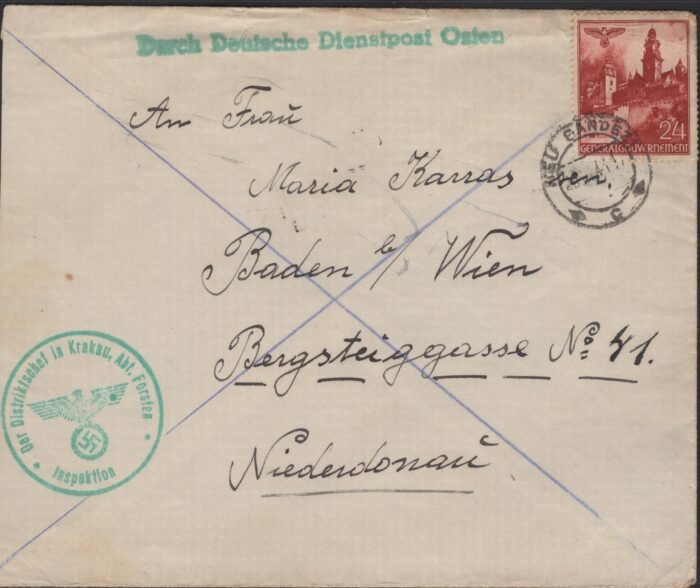 Durch Deutsche Dienstpost Osten
24
GENERALGOUVERNEMENT
NEU SANDEZ
c
An Frau
Maria Karras
Baden b/ Wien
Bergsteiggasse No 41.
Niederdonau
Der Distriktschef in Krakau, Abt. Forsten
Inspektion